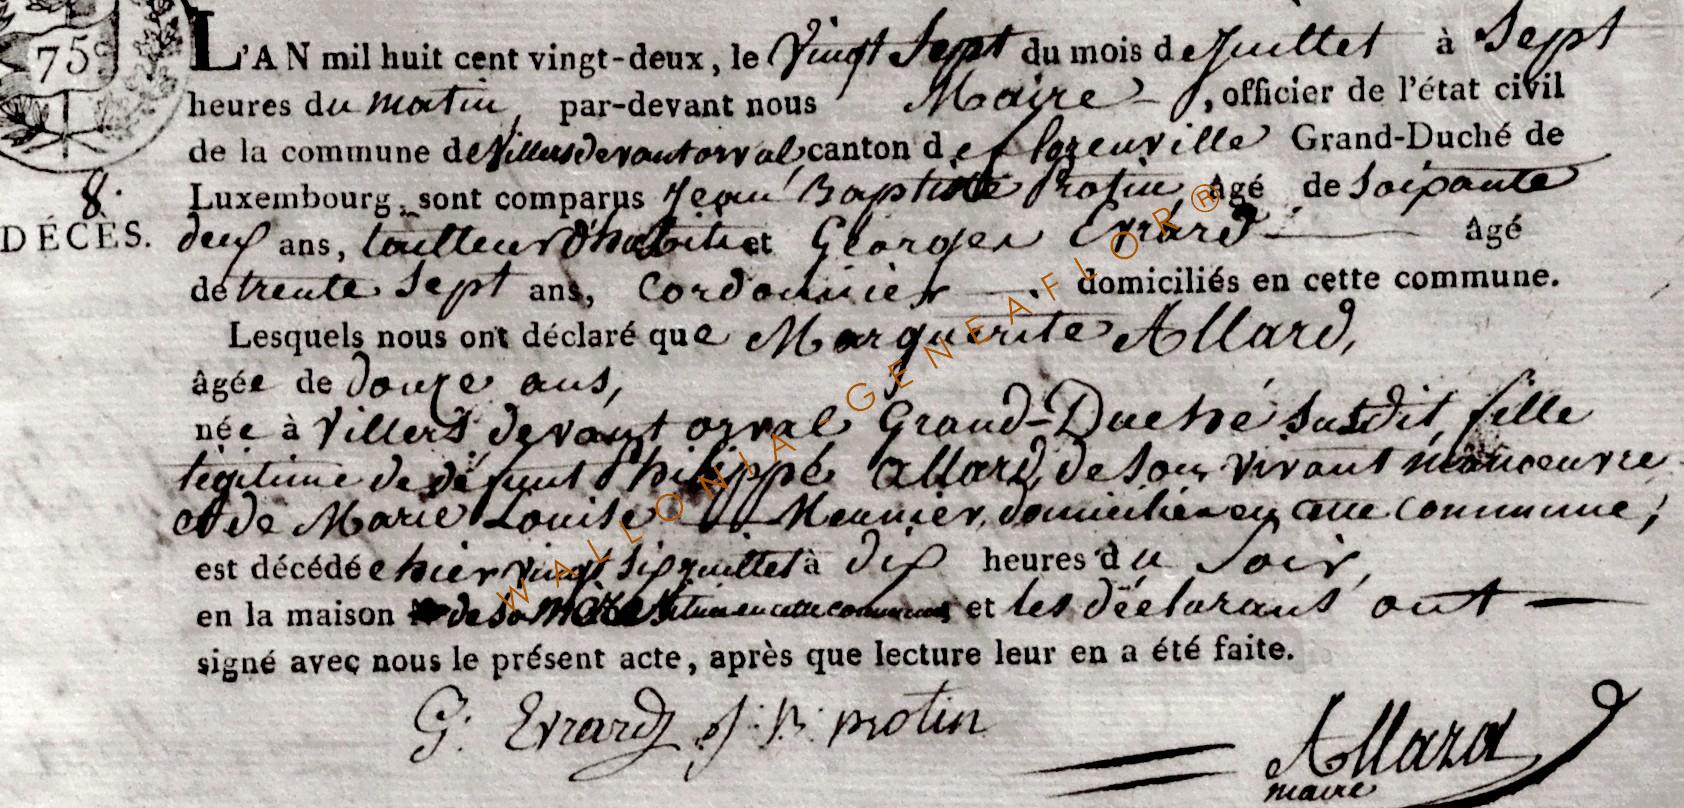 75c
L'AN mil huit cent vingt-deux, le Vingt Sept du mois de Juillet à Sept
heures du matin, par-devant nous Maire, officier de l'état civil
de la commune de Villers devant orval, canton de florenville Grand-Duché de
8.
Luxembourg, sont comparus Jean Baptiste Protin, âgé de Soixante
DÉCÈS.
deux ans, tailleur d'habits et Georges Errard âgé
de trente Sept ans, Cordonnier domiciliés en cette commune.
Lesquels nous ont déclaré que Marguerite Allard,
âgée de douze ans,
née à Villers devant orval Grand-Duché Susdit, fille
légitime de défunt Philippe Allard, de Son vivant manoeuvre
et de Marie Louise Meunier, domiciliée en cette commune;
est décédée hier vingt Six juillet à dix heures du Soir,
en la maison de Sa mère Située en cette commune, et les déclarans ont
signé avec nous le présent acte, après que lecture leur en a été faite.
G. Errard J. B. protin
Allard
maire
WALLONIA GENEAFLOR®